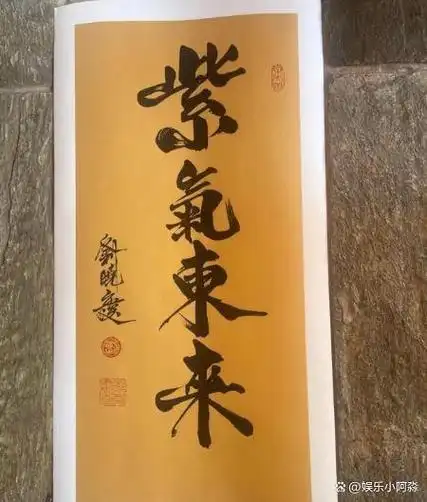 紫氣東来
劉曉慶
@娱乐小阿淼